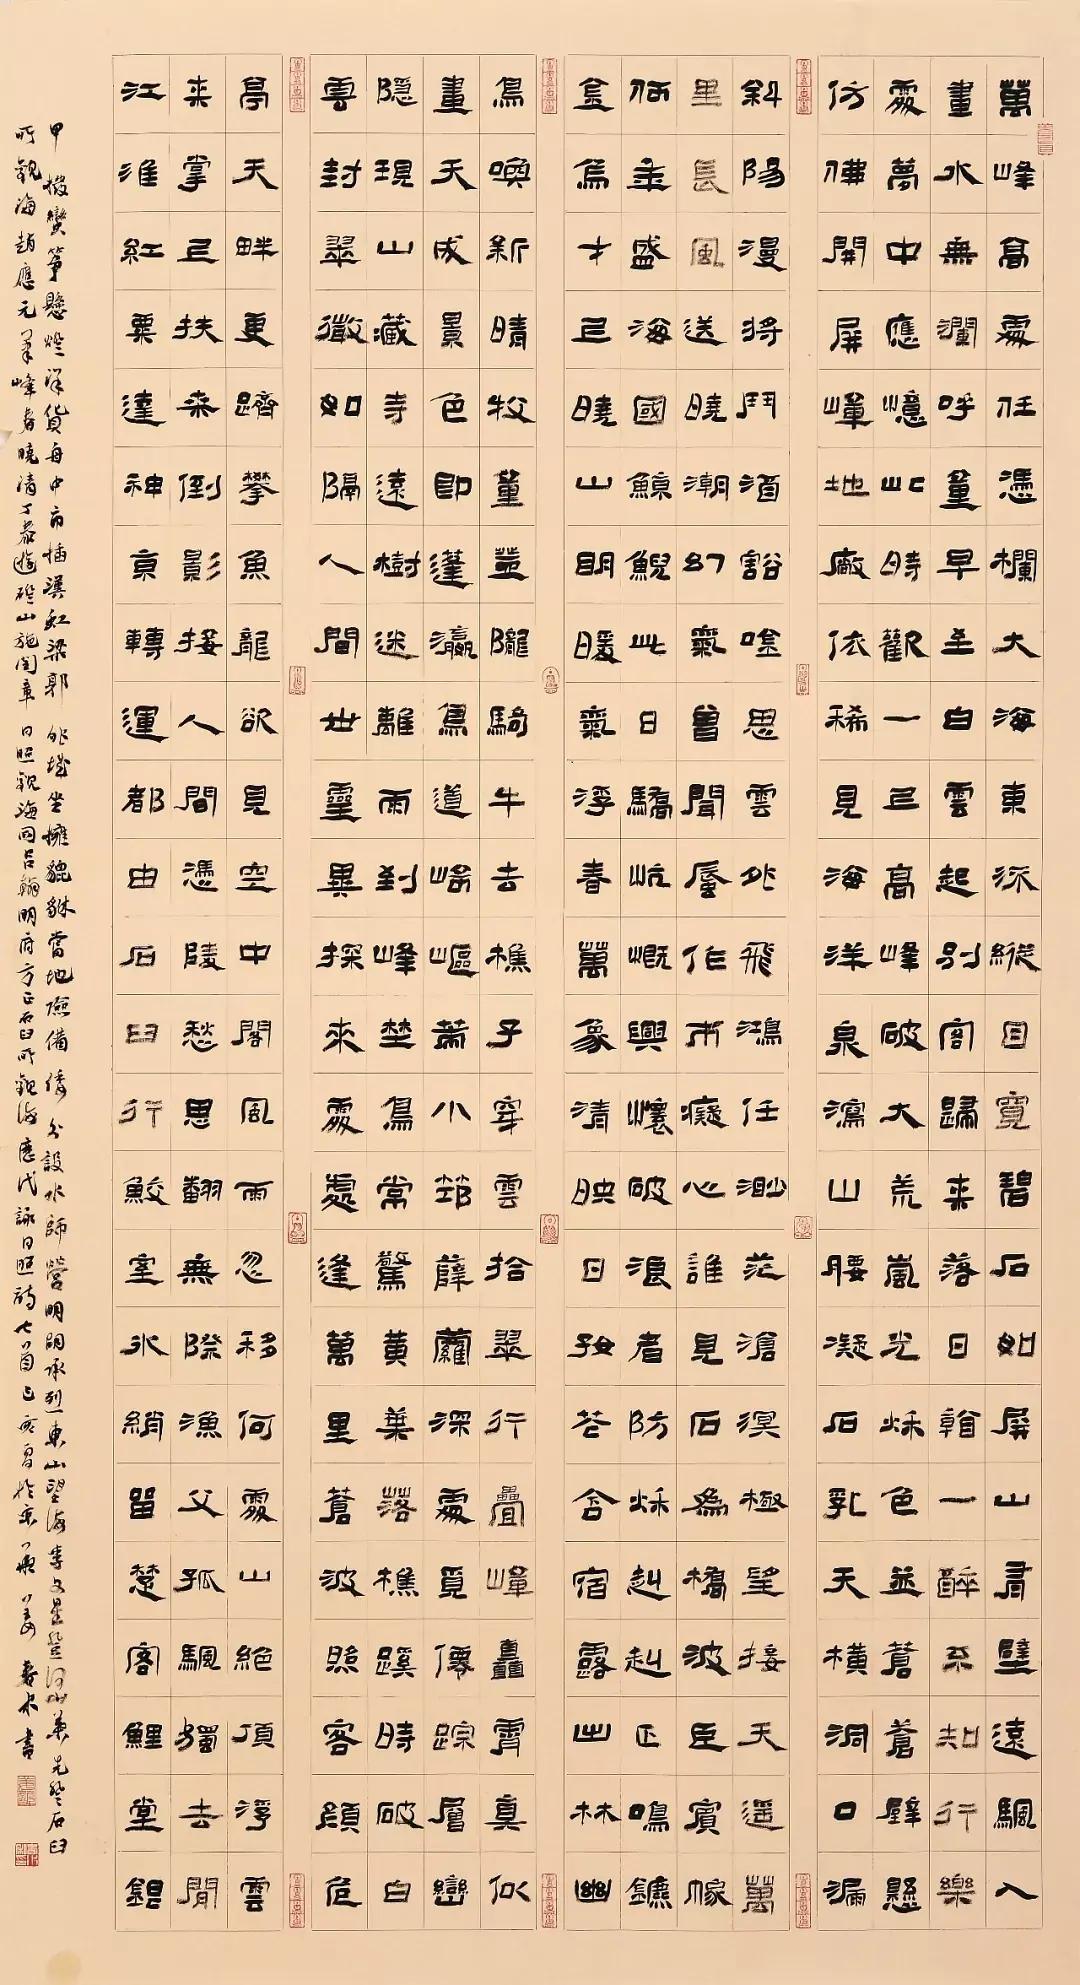 萬峰高處任憑欄大海東添縱目寬碧石如屏山肅壁遠颿入
畫水無瀾呼童早至白雲起別客歸來落日翰一醉系知行樂
處夢中應憶此時觀一巨高峰破大荒嵐光秌色並蒼蒼壁懸
仿彿開屏嶂地廠依稀見海洋泉瀉山腰凝石乳天橫洞口漏
斜陽漫將鬥酒豁唫思雲外飛鴻任渺茫滄溟極望接天遥萬
里長風送曉潮幻氣曾聞蜃作市癡心誰見石為橋波臣賓幏
何垂盛海國鯨鯢此日驕忼慨興懷破浪者防秌赳赳正鳴鑣
金烏才巨曉山明暖氣浮春萬象清映日芒含宿露出林幽
鳥喚新晴牧童並隴騎牛去樵子穿雲拾翠行疊嶂轟霄真似
畫天成景色即蓬瀛鳥道崎嶇蕭小筇薜蘿深處覓僊踪層巒
隱現山藏寺遠樹迷離雨到峰埜鳥常驚黃葉落樵蹊時破白
雲封翠微如隔人間世靈異探來處處逢萬里蒼波照客顔危
亭天畔更躋攀魚龍欲見空中閣風雨忽移何處山絕頂浮雲
來掌巨扶桒倒影接人間憑陵愁思翻無際漁父孤颿獨去閒
江淮紅粟達神京轉運都由石臼行鮫室水綃留楚客鯉堂銀
甲擫蠻箏懸燈洋貨舟中市插漢虹梁郭外城坐擁貔貅當地險備倭分設水師營明承烈東山望海李文星登河山兼先登石臼
所觀海趙應元筆峰春曉清丁泰遊磴山施閏章日照觀海同呂翰明府方正石臼所觀海歷代詠日照詩七首己亥夏於京華姜書